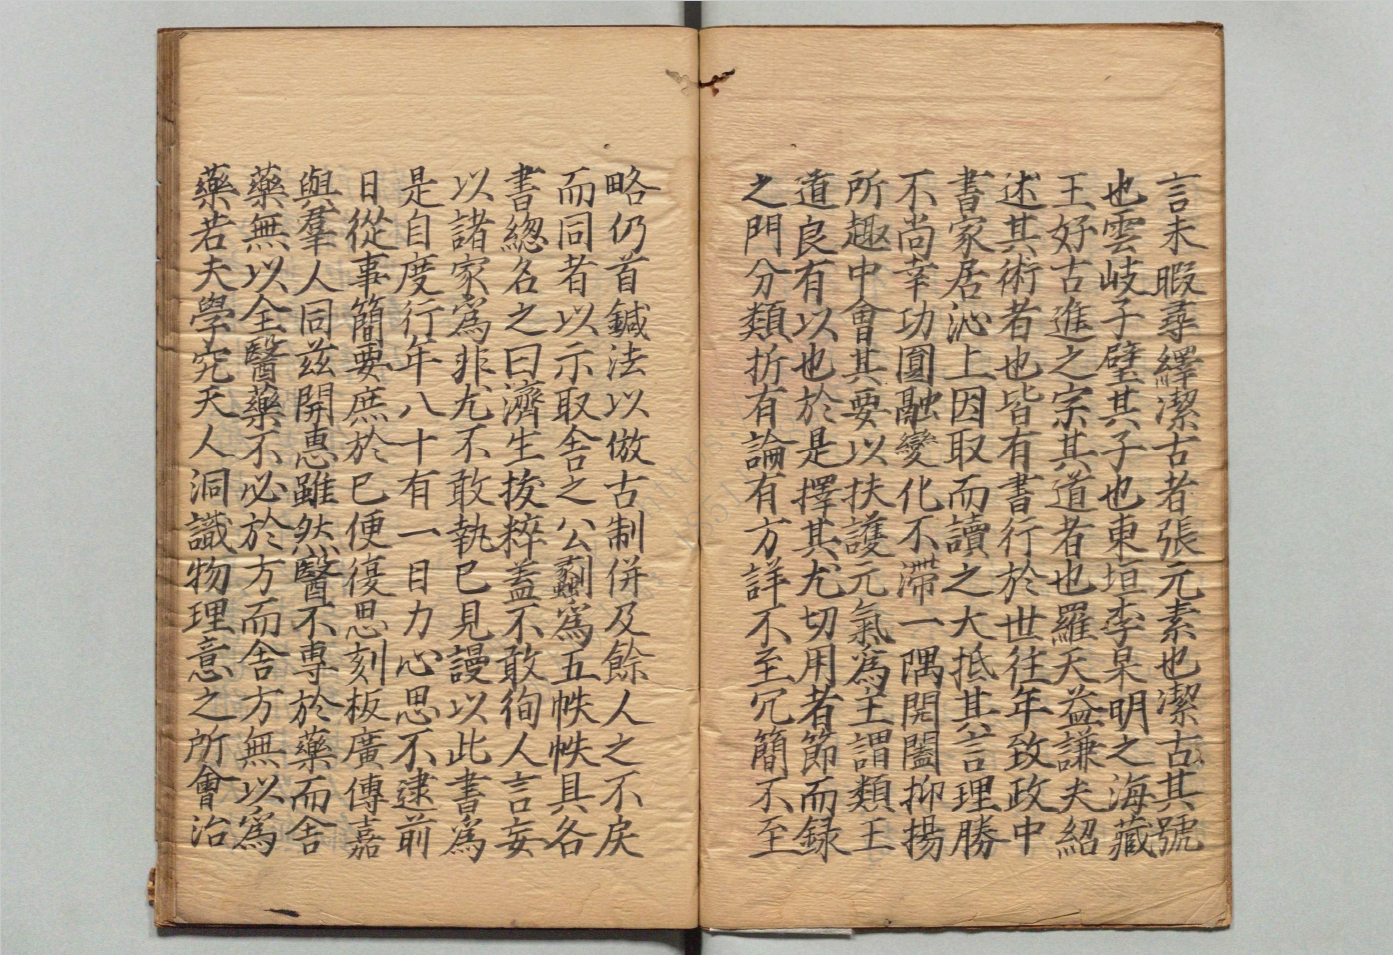 言未暇尋繹潔古者張元素也潔古其號
也雲岐子璧其子也東垣李杲明之海藏
王好古進之宗其道者也羅天益謙夫紹
述其術者也皆有書行於世往年致政中
書家居沁上因取而讀之大抵其言理勝
不尚幸功圓融變化不滯一隅開闔抑揚
所趣中會其要以扶護元氣為主謂類王
道良有以也於是擇其尤切用者節而録
之門分類折有論有方詳不至冗簡不至
略仍首鍼法以倣古制併及餘人之不戾
而同者以示取舍之公劃為五帙帙具各
書緫名之曰濟生拔粹蓋不敢徇人言妄
以諸家為非尤不敢執己見謾以此書為
是自度行年八十有一目力心思不逮前
日從事簡要庶於己便復思刻板廣傳嘉
與羣人同茲開惠雖然醫不專於藥而舍
藥無以全醫藥不必於方而舍方無以為
藥若夫學究天人洞識物理意之所會治